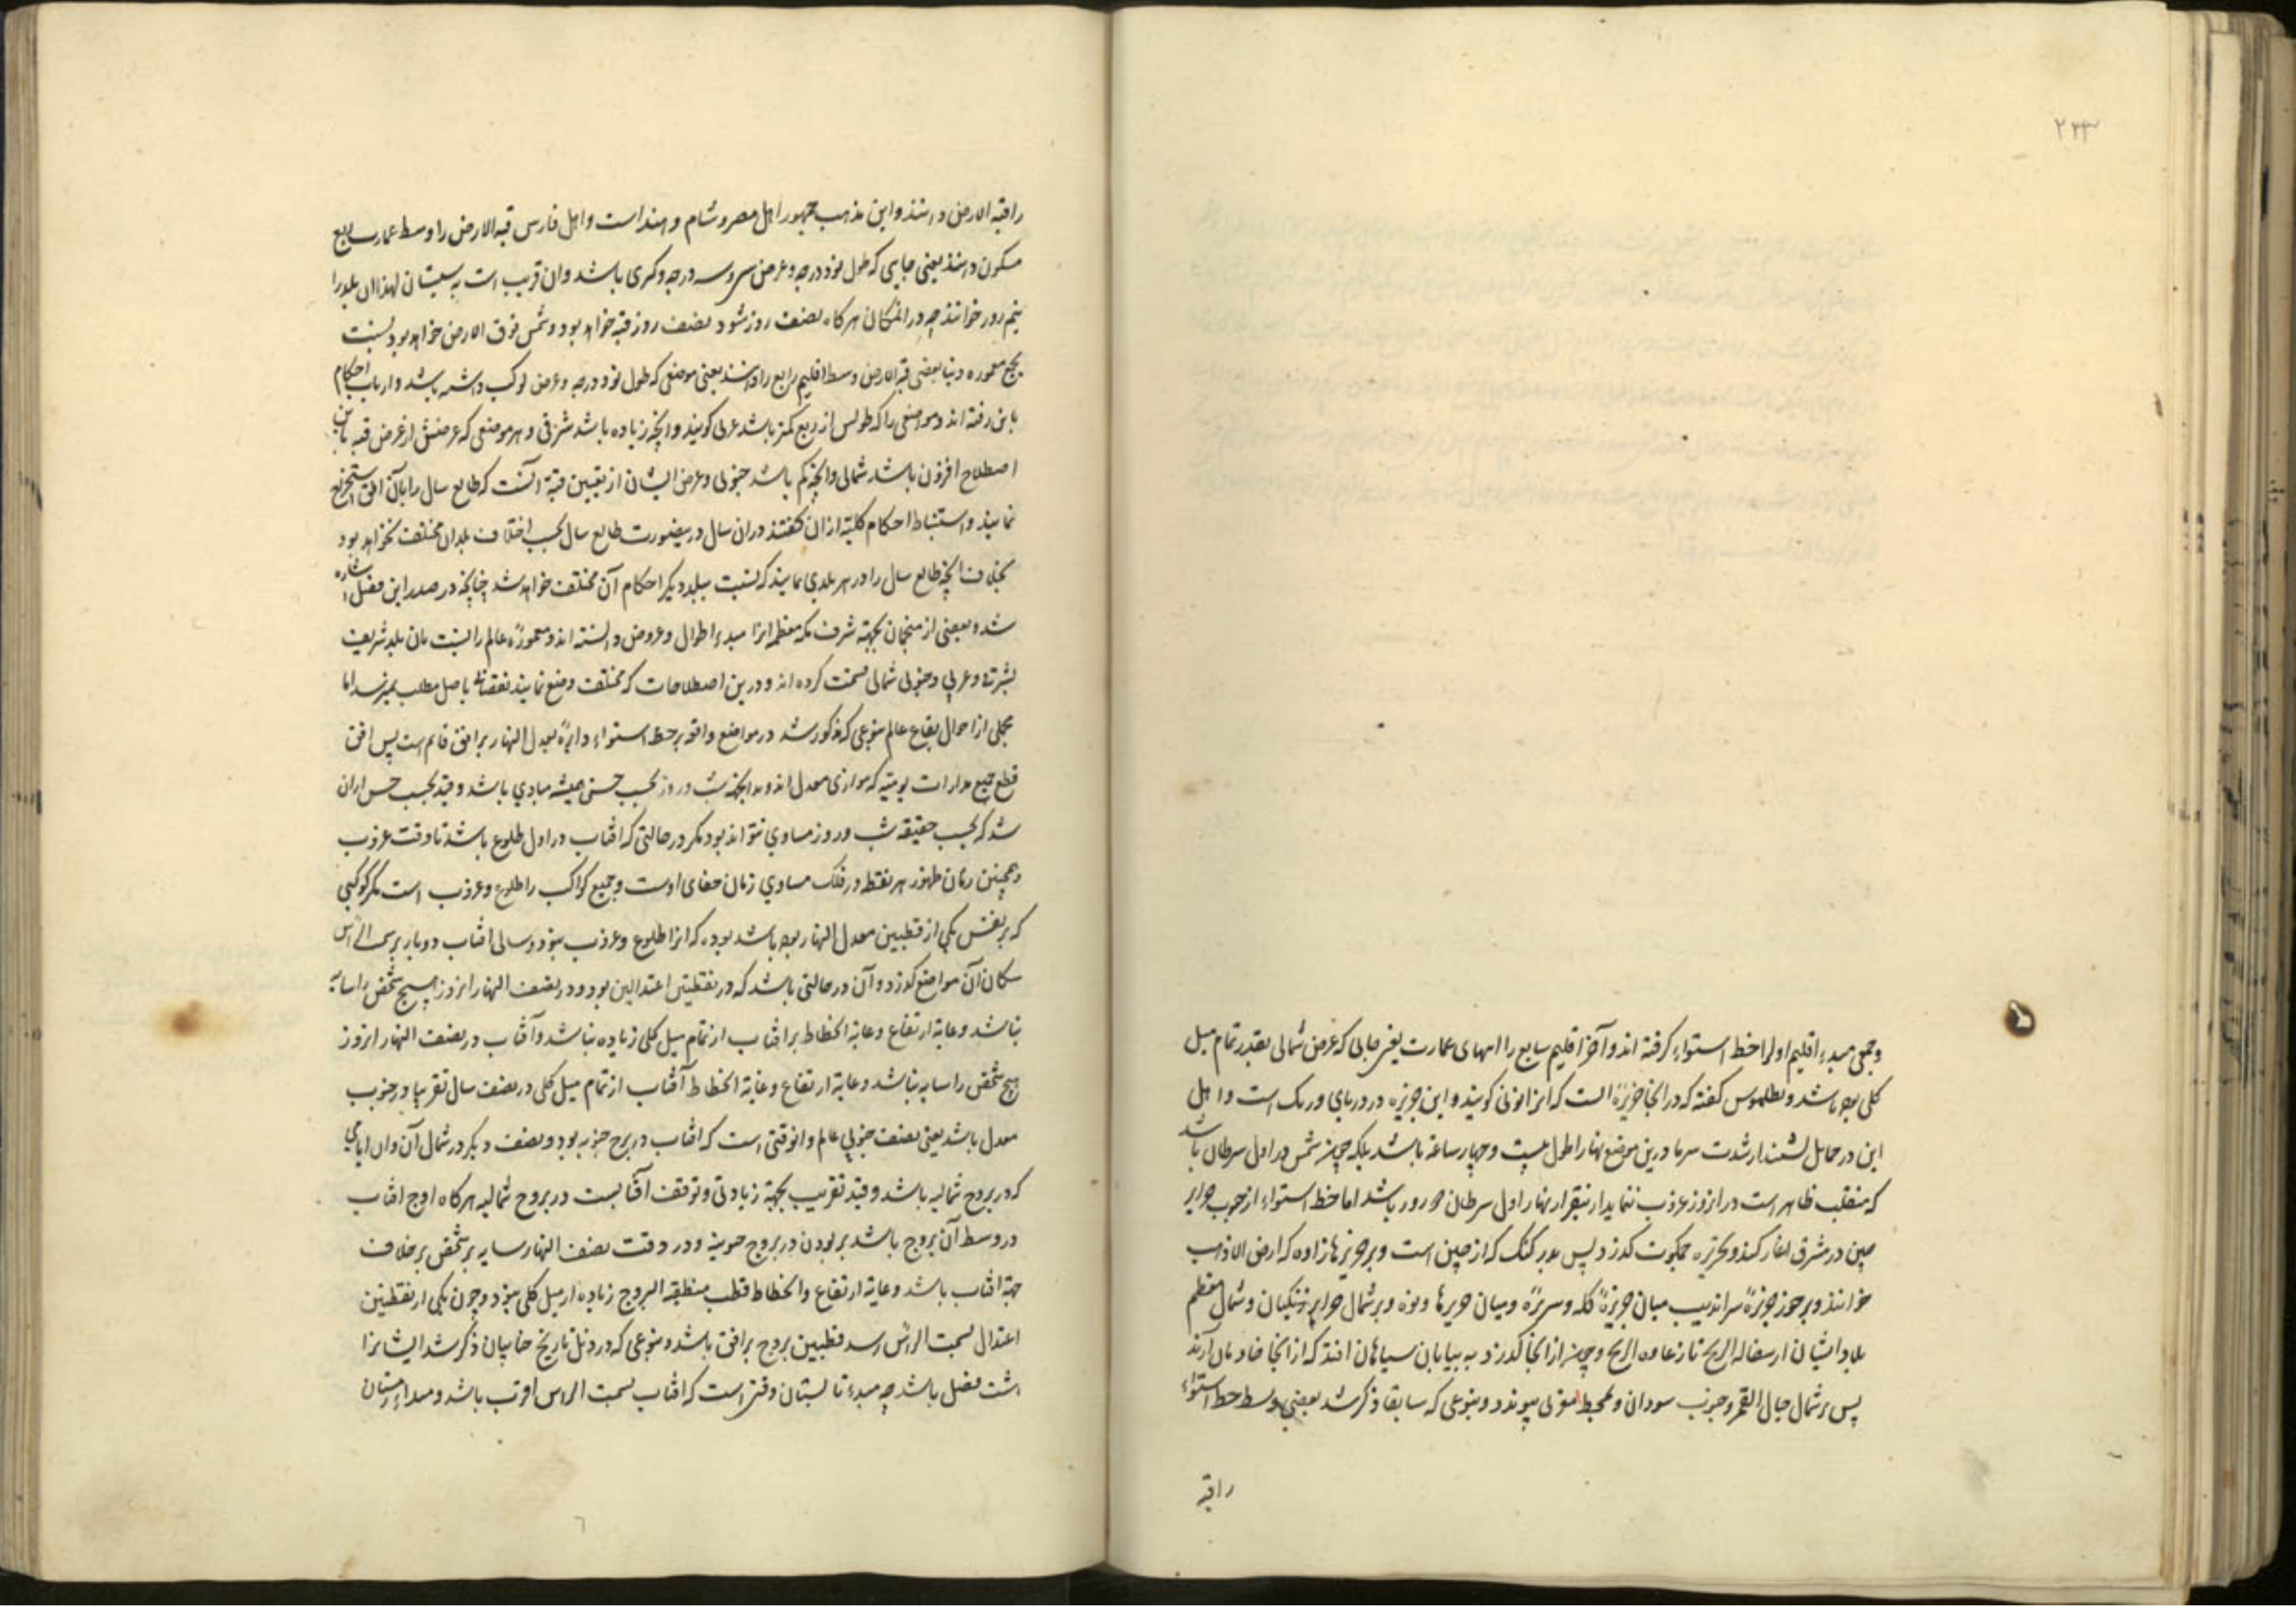 ۲۲۳
وجمعی مبدء اقلیم اول را خط استواء کرفته اند وآخر اقلیم سابع را انتهای عمارت یعنی جایی که عرض شمالی بقدر تمام میل
کلی بود باشد وبطلمیوس کفته که در انجا جزیرهٔ است که انرا تولی کویند و این جزیره در دریای ورنک است و اهل
این در حمامات از شدت سرما و درین موضع نهار اطول بیست و چهار ساعة باشد بلکه چون شمس در اول سرطان باشد
که منقلب ظاهر است در انروز غروب ننماید نهار اول سرطان باشد اما خط استواء از جنوب جزایر
چین در مشرق اغاز کند و بجزیره جمکوت کذرد پس بر کنک که از چین است وبر جزیرهٔ زاده که ارض الذهب
خوانند و بر جنوب جزیرهٔ سراندیب میان جزیرهٔ کله و سریره ومیان جزیرها وبر شمال جزایر زنکیان و شمال معظم
بلاد ایشان وچون از انجا کذرد به بیابان سیاهان افتد که از انجا خادمان آرند
پس بر شمال جبال القمر و جنوب سودان و بمحیط مغربی پیوندد و بنوعی که سابقا ذکر شد بعضی وسط خط استواء
راقبه
راقبة الارض دانند واین مذهب جمهور اهل مصر و شام و هند است و اهل فارس قبة الارض را وسط عمارت ربع
مسکون دانند یعنی جایی که طول نود درجه وعرض سی و سه درجه وکسری باشد وان قریب است به سیستان لهذا ان بلد را
نیم روز خوانند چه در انمکان هرکاه نصف روز شود نصف روز قبه خواهد بود وشمس فوق الارض خواهد بود بنسبت
بجمیع معموره دنیا بعضی قبة الارض وسط اقلیم رابع را دانند یعنی موضعی که طول نود درجه وعرض لو کب داشته باشد وارباب احکام
باین رفته اند ومواضعی را که طولش از ربع کمتر باشد غربی کویند وانچه زیاده باشد شرقی وهر موضعی که عرضش از عرض قبه باین
اصطلاح افزون باشد شمالی وانچه کم باشد جنوبی وغرض ایشان از تعیین قبه انست که طالع سال را بآن افق استخراج
نمایند و استنباط احکام کلیه از ان کفتند دران سال درینصورت طالع سال بحسب اختلاف بلدان مختلف نخواهد بود
بخلاف انچه طالع سال را در هر بلدی نمایند که نسبت ببلد دیکر احکام آن مختلف خواهد شد چنانچه در صدر این فصل اشاره
شد وبعضی از منجمان بجهة شرف مکه معظمه انرا مبدء اطوال وعروض دانسته اند ومعمورهٔ عالم را بنسبت بان بلد شریف
بشرقی و غربی وجنوبی شمالی قسمت کرده اند ودرین اصطلاحات که مختلف وضع نمایند نقصانی باصل مطلب نمیرسد اما
مجملی از احوال بقاع عالم بنوعی که مذکور شد در مواضع واقعه بر خط استواء دایرهٔ معدل النهار بر افق قایم است پس افق
قطع جمیع مدارات یومیه که موازی معدل اند وبدانجهة شب و روز بحسب حس همیشه مساوی باشد وقید بحسب حس ازان
شد که بحسب حقیقه شب وروز مساوی نتواند بود مکر در حالتی که افتاب در اول طلوع باشد تا وقت غروب
وهمچنین زمان ظهور هر نقطه در فلک مساوی زمان خفای اوست وجمیع کواکب را طلوع وغروب است مکر کوکبی
که بر نفس یکی از قطبین معدل النهار بوده باشد بوده که انرا طلوع وغروب نبود وسالی افتاب دوبار بر سمت الرأس
سکان آن مواضع کذرد وآن در حالتی باشد که در نقطتین اعتدالین بود ودر نصف النهار انروز هیچ شخص را سایه
نباشد وغایة ارتفاع وغایة انحطاط بر افتاب از تمام میل کلی زیاده نباشد وآفتاب در نصف النهار انروز
هیچ شخص را سایه نباشد وغایة ارتفاع وغایة انحطاط آفتاب از تمام میل کلی در نصف سال تقریبا در جنوب
معدل باشد یعنی نصف جنوبی عالم وانوقتی است که افتاب در بروج جنوبیه بود و نصف دیکر در شمال آن وان ایامی
که در بروج شمالیه باشد وقید تقریب بجهة زیادتی وتوقف آفتابست در بروج شمالیه هرکاه اوج افتاب
در وسط آن بروج باشد بر بودن در بروج جنوبیه ودر وقت نصف النهار سایه بر شخص بر خلاف
جهة افتاب باشد وغایة ارتفاع وانحطاط قطب منطقه البروج زیاده از میل کلی نبود وچون یکی از نقطتین
اعتدال بسمت الرأس رسد قطبین بروج بر افق باشد وبنوعی که در ذیل تاریخ ختاییان ذکر شد ایشانرا
هشت فصل باشد چه مبدء تابستان وقتی است که افتاب بسمت الراس اقرب باشد ومبداء زمستان